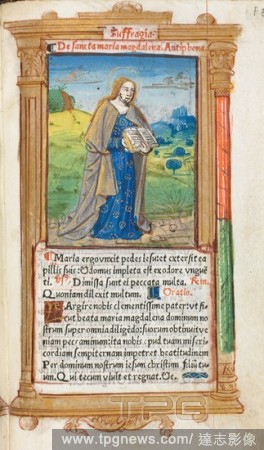 Suffragia.
De sancta maria magdalena. Antiphona
Maria ergo vnxit pedes iesu: et extersit ca
pillis suis: & domus impleta est ex odore vnguē
ti. Dimissa sunt ei peccata multa.
Quoniam dilexit multum. Oratio.
Largire nobis clementissime pater: vt si
cut beata maria magdalena dominum no
strum super omnia diligēdo: suorum obtinuit ve
niam peccaminum: ita nobis: apud tuam miseri
cordiam sempiternam impetret beatitudinem
Per dominum nostrum iesum christum filiū tu
um. Qui tecum viuit et regnat. &c.
www.tpgnews.com / 達志影像